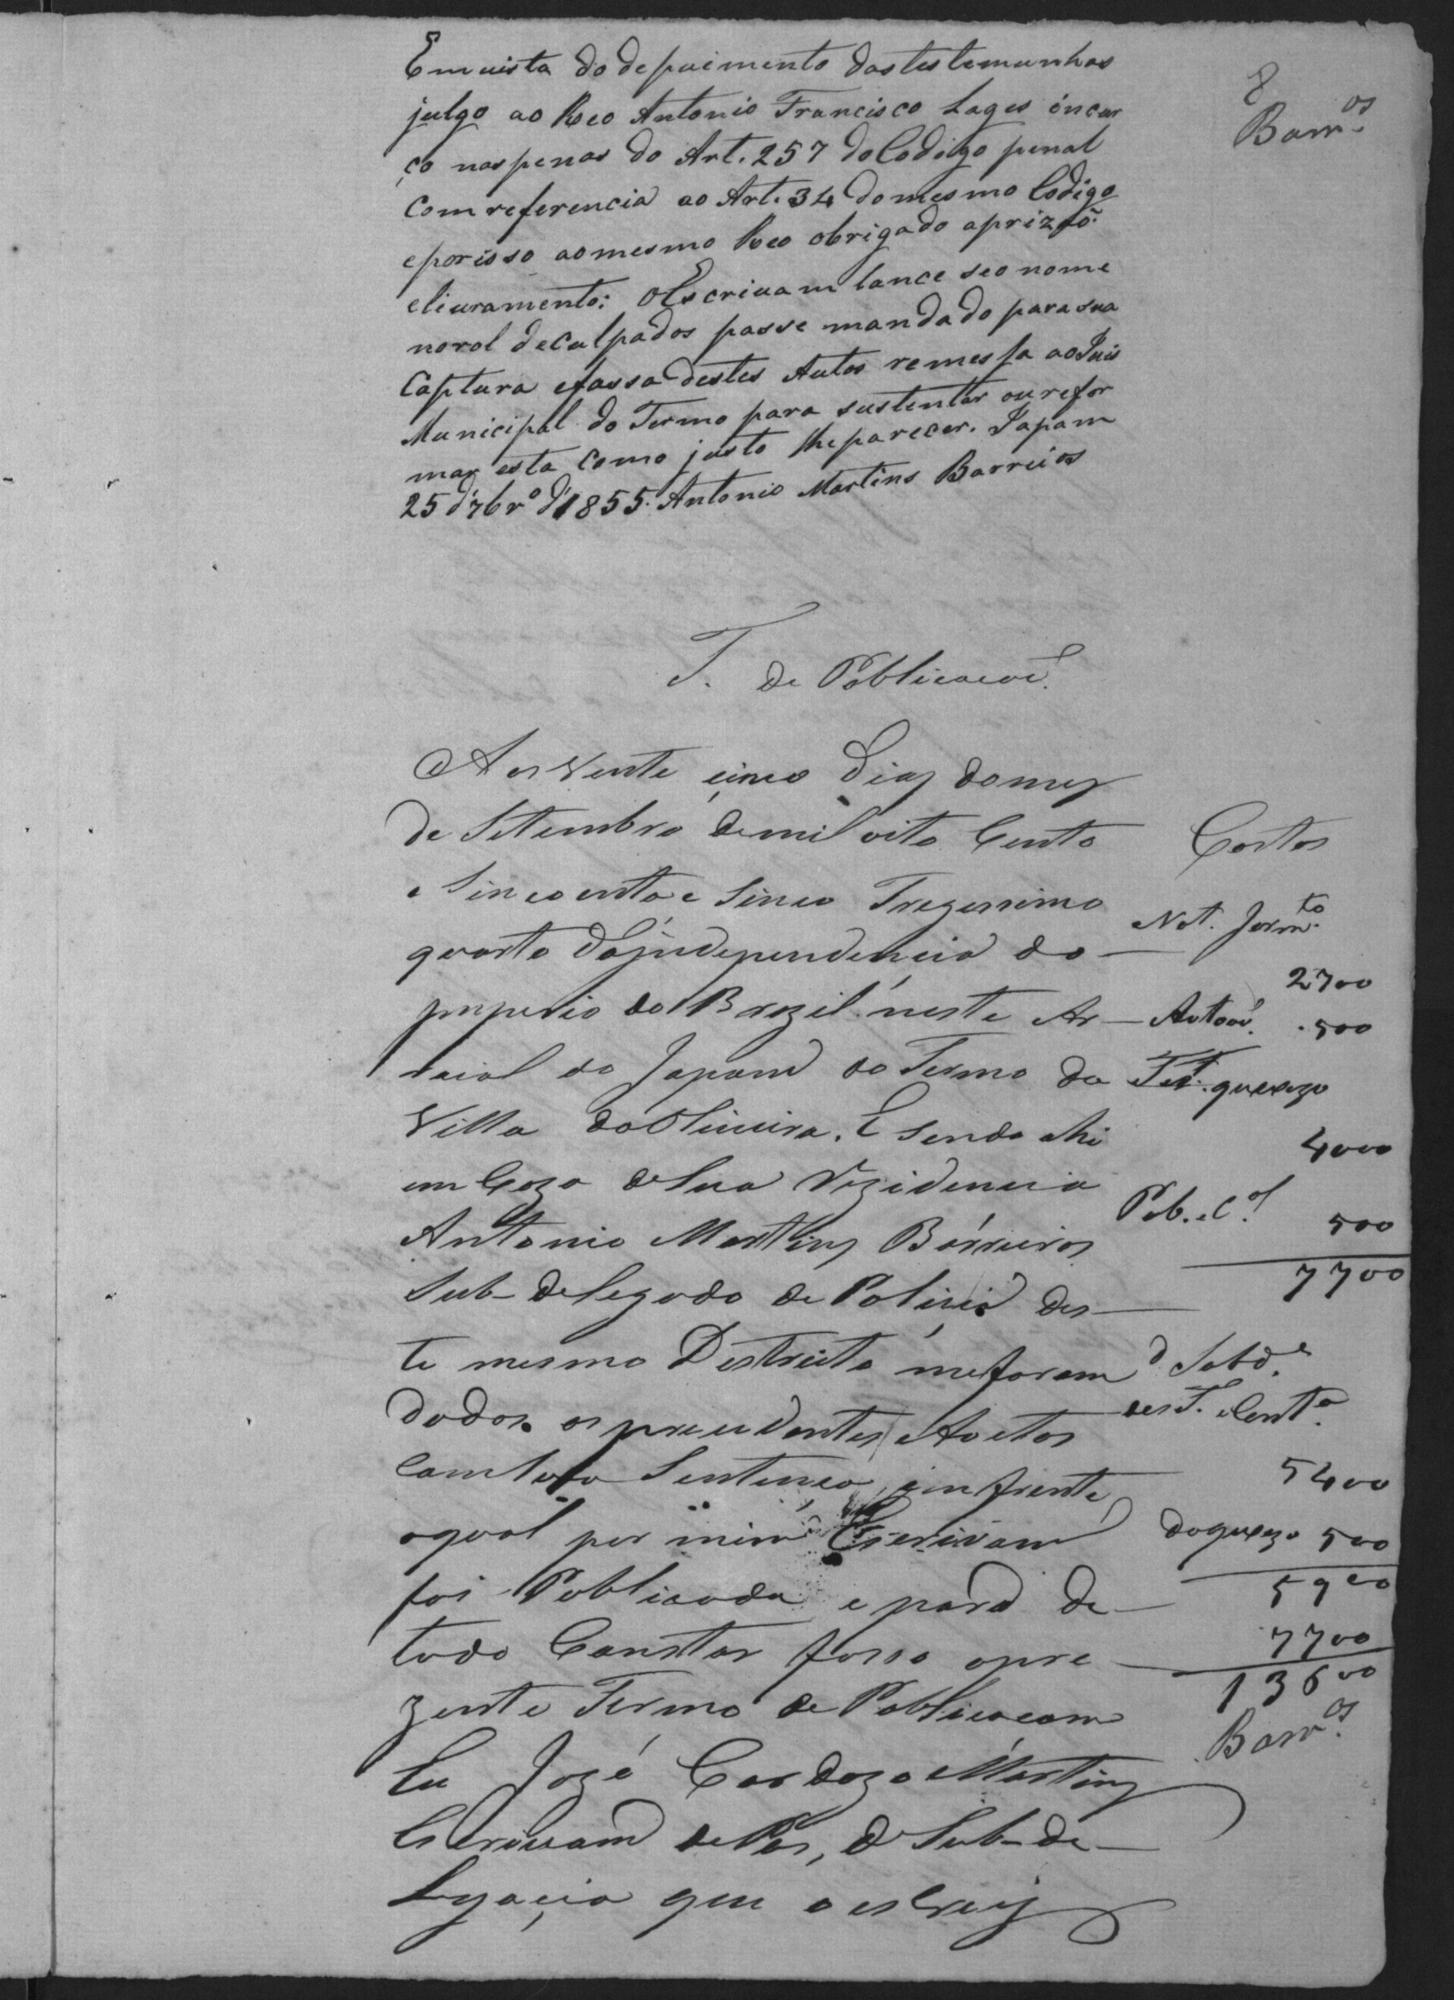 8
Barr.os
Em vista do depuimento das testemunhas
julgo ao Reo Antonio Francisco Lages incur
ço nas penas do Art. 257 do Codigo penal
com referencia ao Art. 34 do mesmo Codigo
e por isso ao mesmo Reo obrigado a prizaõ
e livramento: O Escrivam lance seo nome
no rol de Culpados passe mandado para sua
Captura e fassa destes Autos remessa ao Juis
Municipal do Termo para sustentar ou refor
mar esta como justo lhe parecer. Japam
25 d' 7br.o d' 1855. Antonio Martins Barreiros
T. de Poblicacoẽ.
Aos vente cinco Dias do mes
de Setembro de mil oito Cento
e Sincoenta e Sinco Tregessimo
quarto da jndependencia do
jmperio do Brazil neste Ar
raial do Japam do Termo da
Villa da Oliveira. E sendo ahi
em Caza de Sua Rezidencia
Antonio Martins Barreiros
Sub-delegado de Policia des
te mesmo Destrito me foram
dados os precedentes Autos
com a Sentenca em frente
a qual por mim Escrivam
foi Poblicada e para de
todo Constar fasso o pre
zente Termo de Poblicacam
Eu José Cardozo Martins
Escrivam de Pas, e Sub-de
legacia que o escrevy
Costas
Not. Jurm.to
2700
Autoaõ. 500
Test. queixozo
4000
Pub. e C.
500
7700
D. Sobd.e
Test. e Cent.a
5400
Do queixozo 500
5900
7700
13600
Barr.os